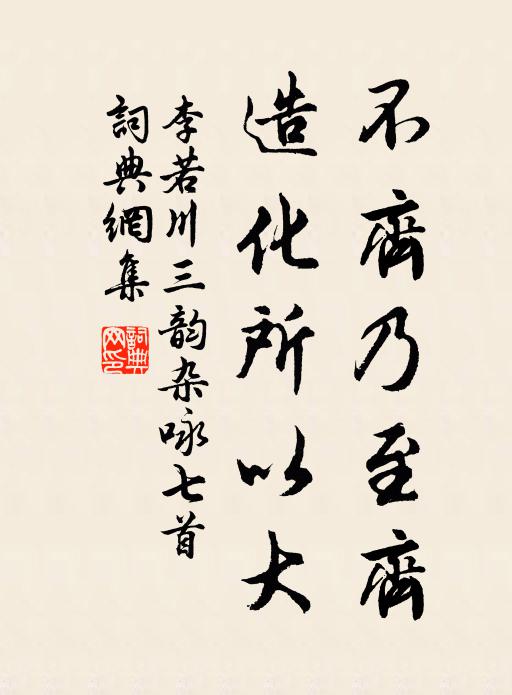 不齊乃至齊
造化所以大
李若川三韵杂咏七首
詞典網集
詞典網印